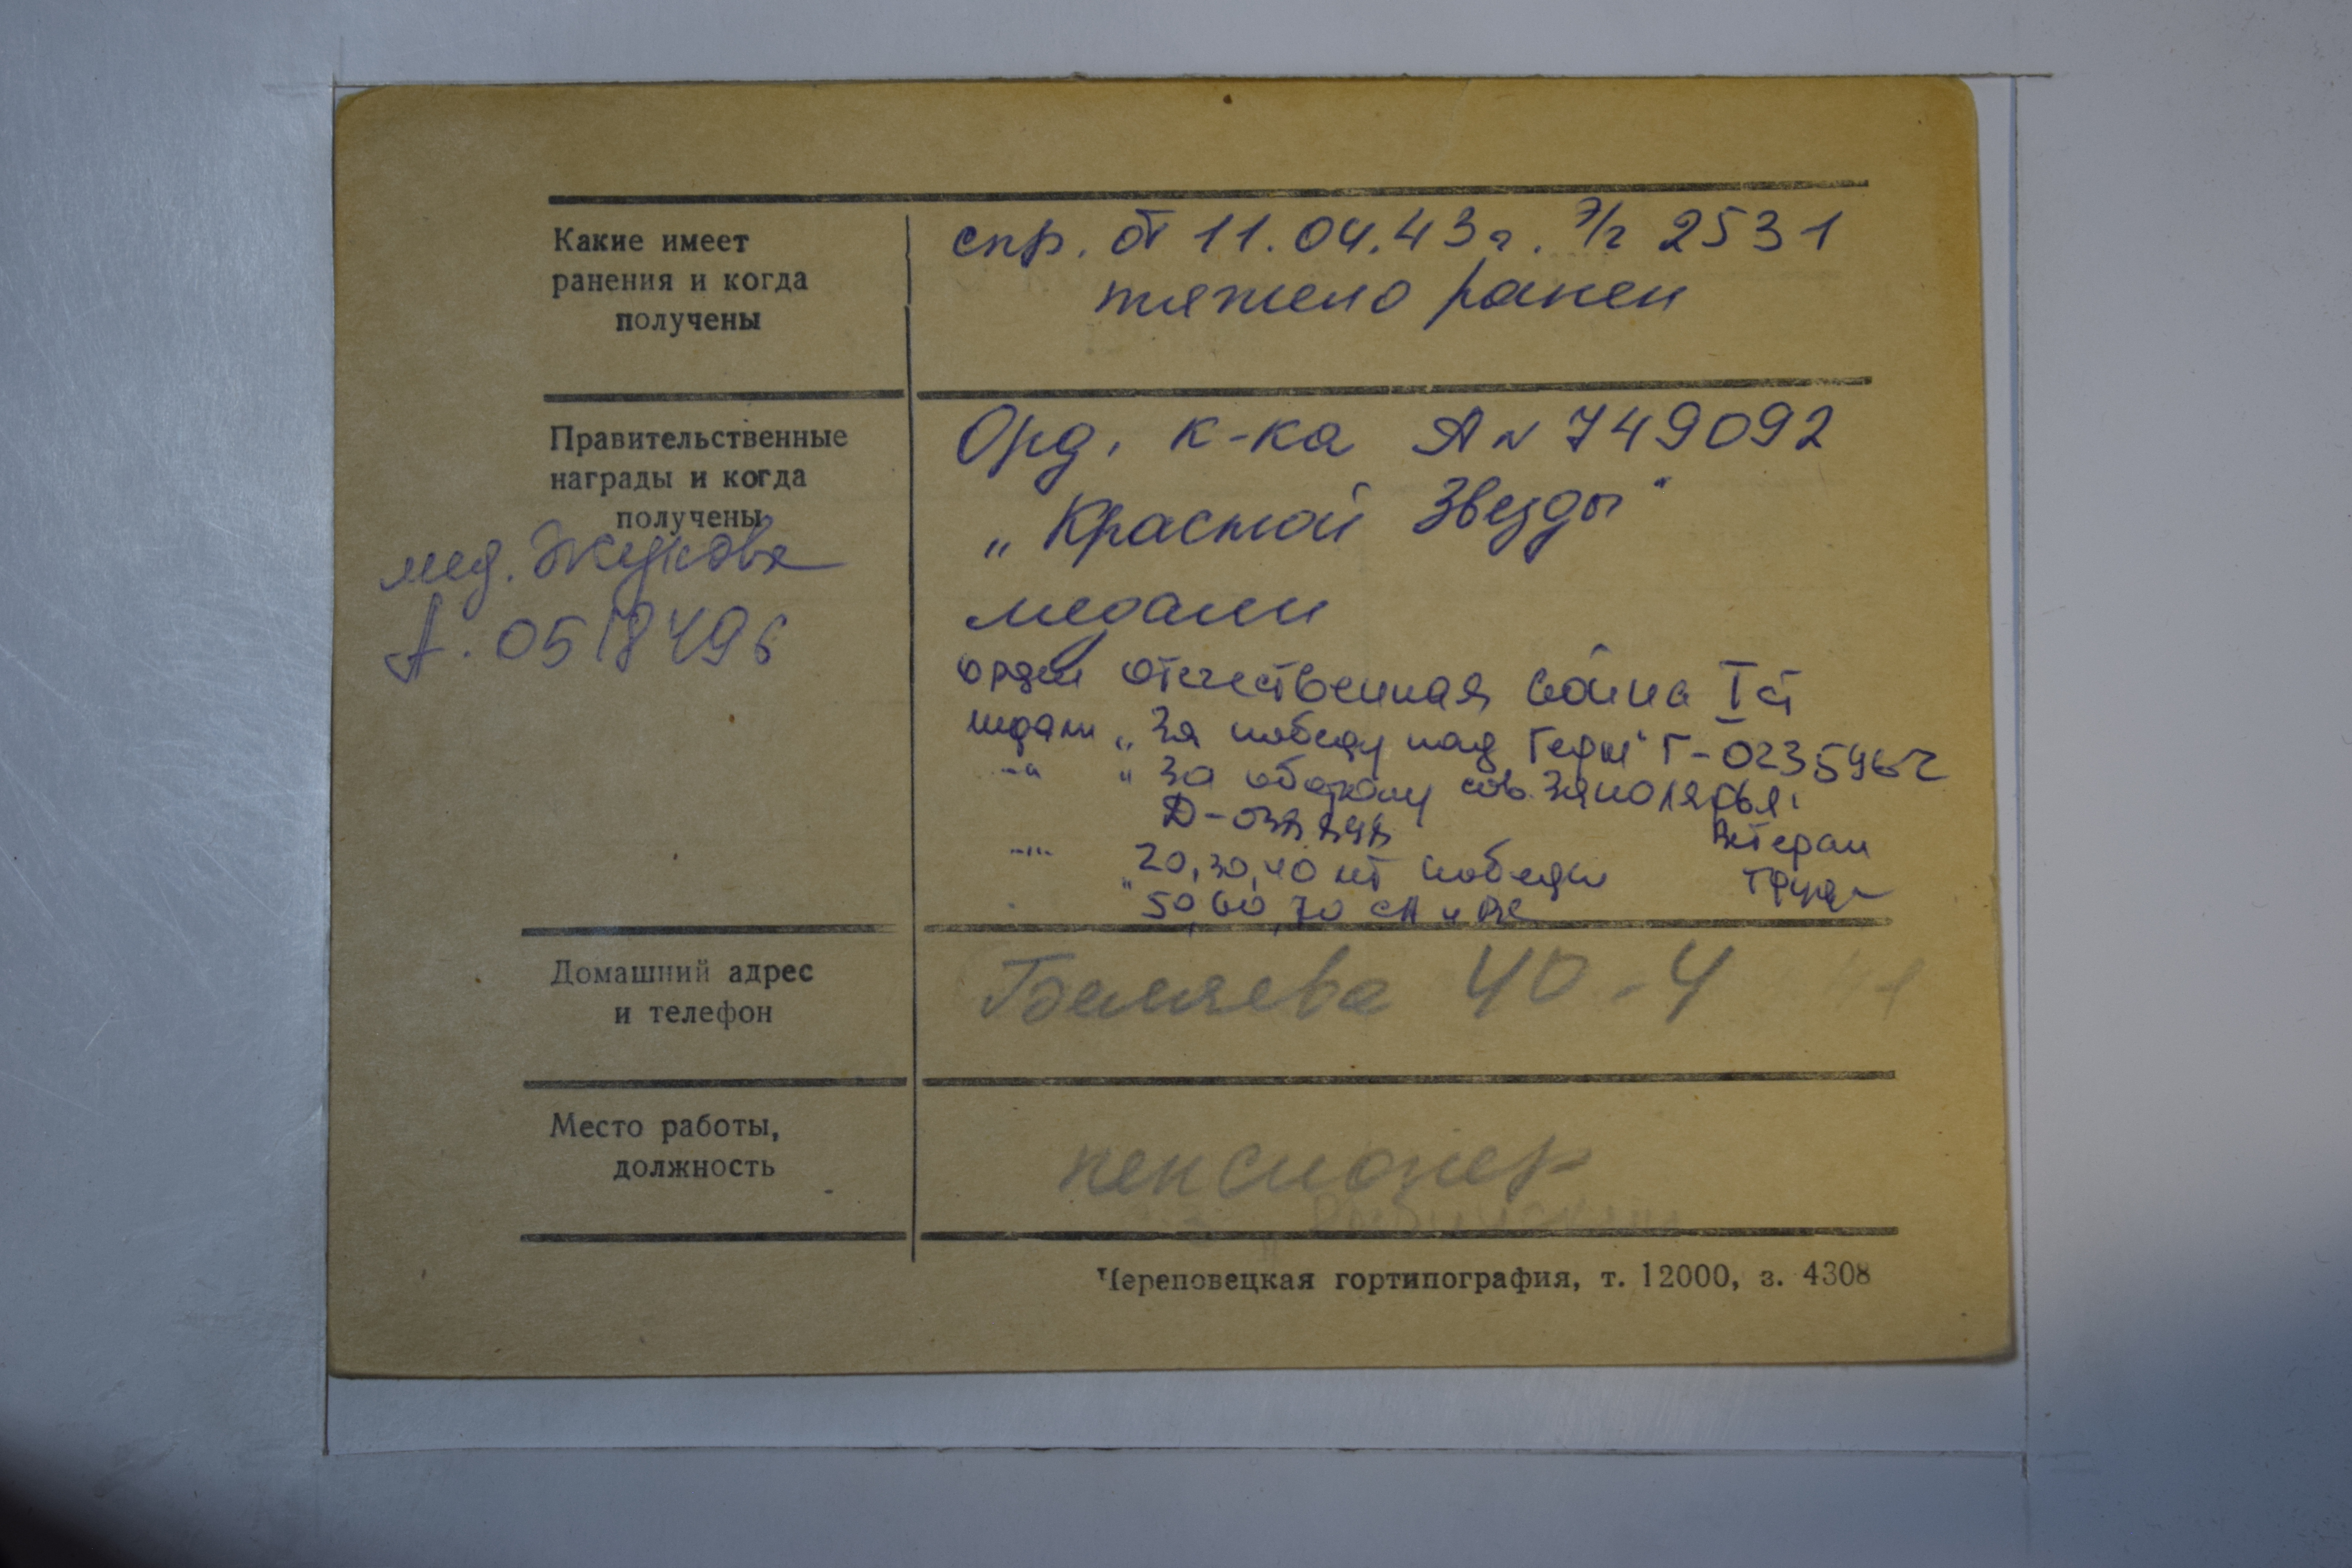 Какие имеет
ранения и когда
получены
спр. от 11.04.43 г. э/г 2531
тяжело ранен
Правительственные
награды и когда
получены
мед. Жукова
А. 0518496
Орд. к-ка А N 749092
„Красной Звезды"
медали
орден Отечественная война I ст
медаль „За победу над Герм" Г-0235962
—"— „За оборону сов. Заполярья.
Д-
Ветеран
труда
—"— 20, 30, 40 лет победы
" 50, 60, 70 СА и ВС
Домашний адрес
и телефон
Беляева 40-4
Место работы,
должность
пенсионер
Череповецкая гортипография, т. 12000, з. 4308